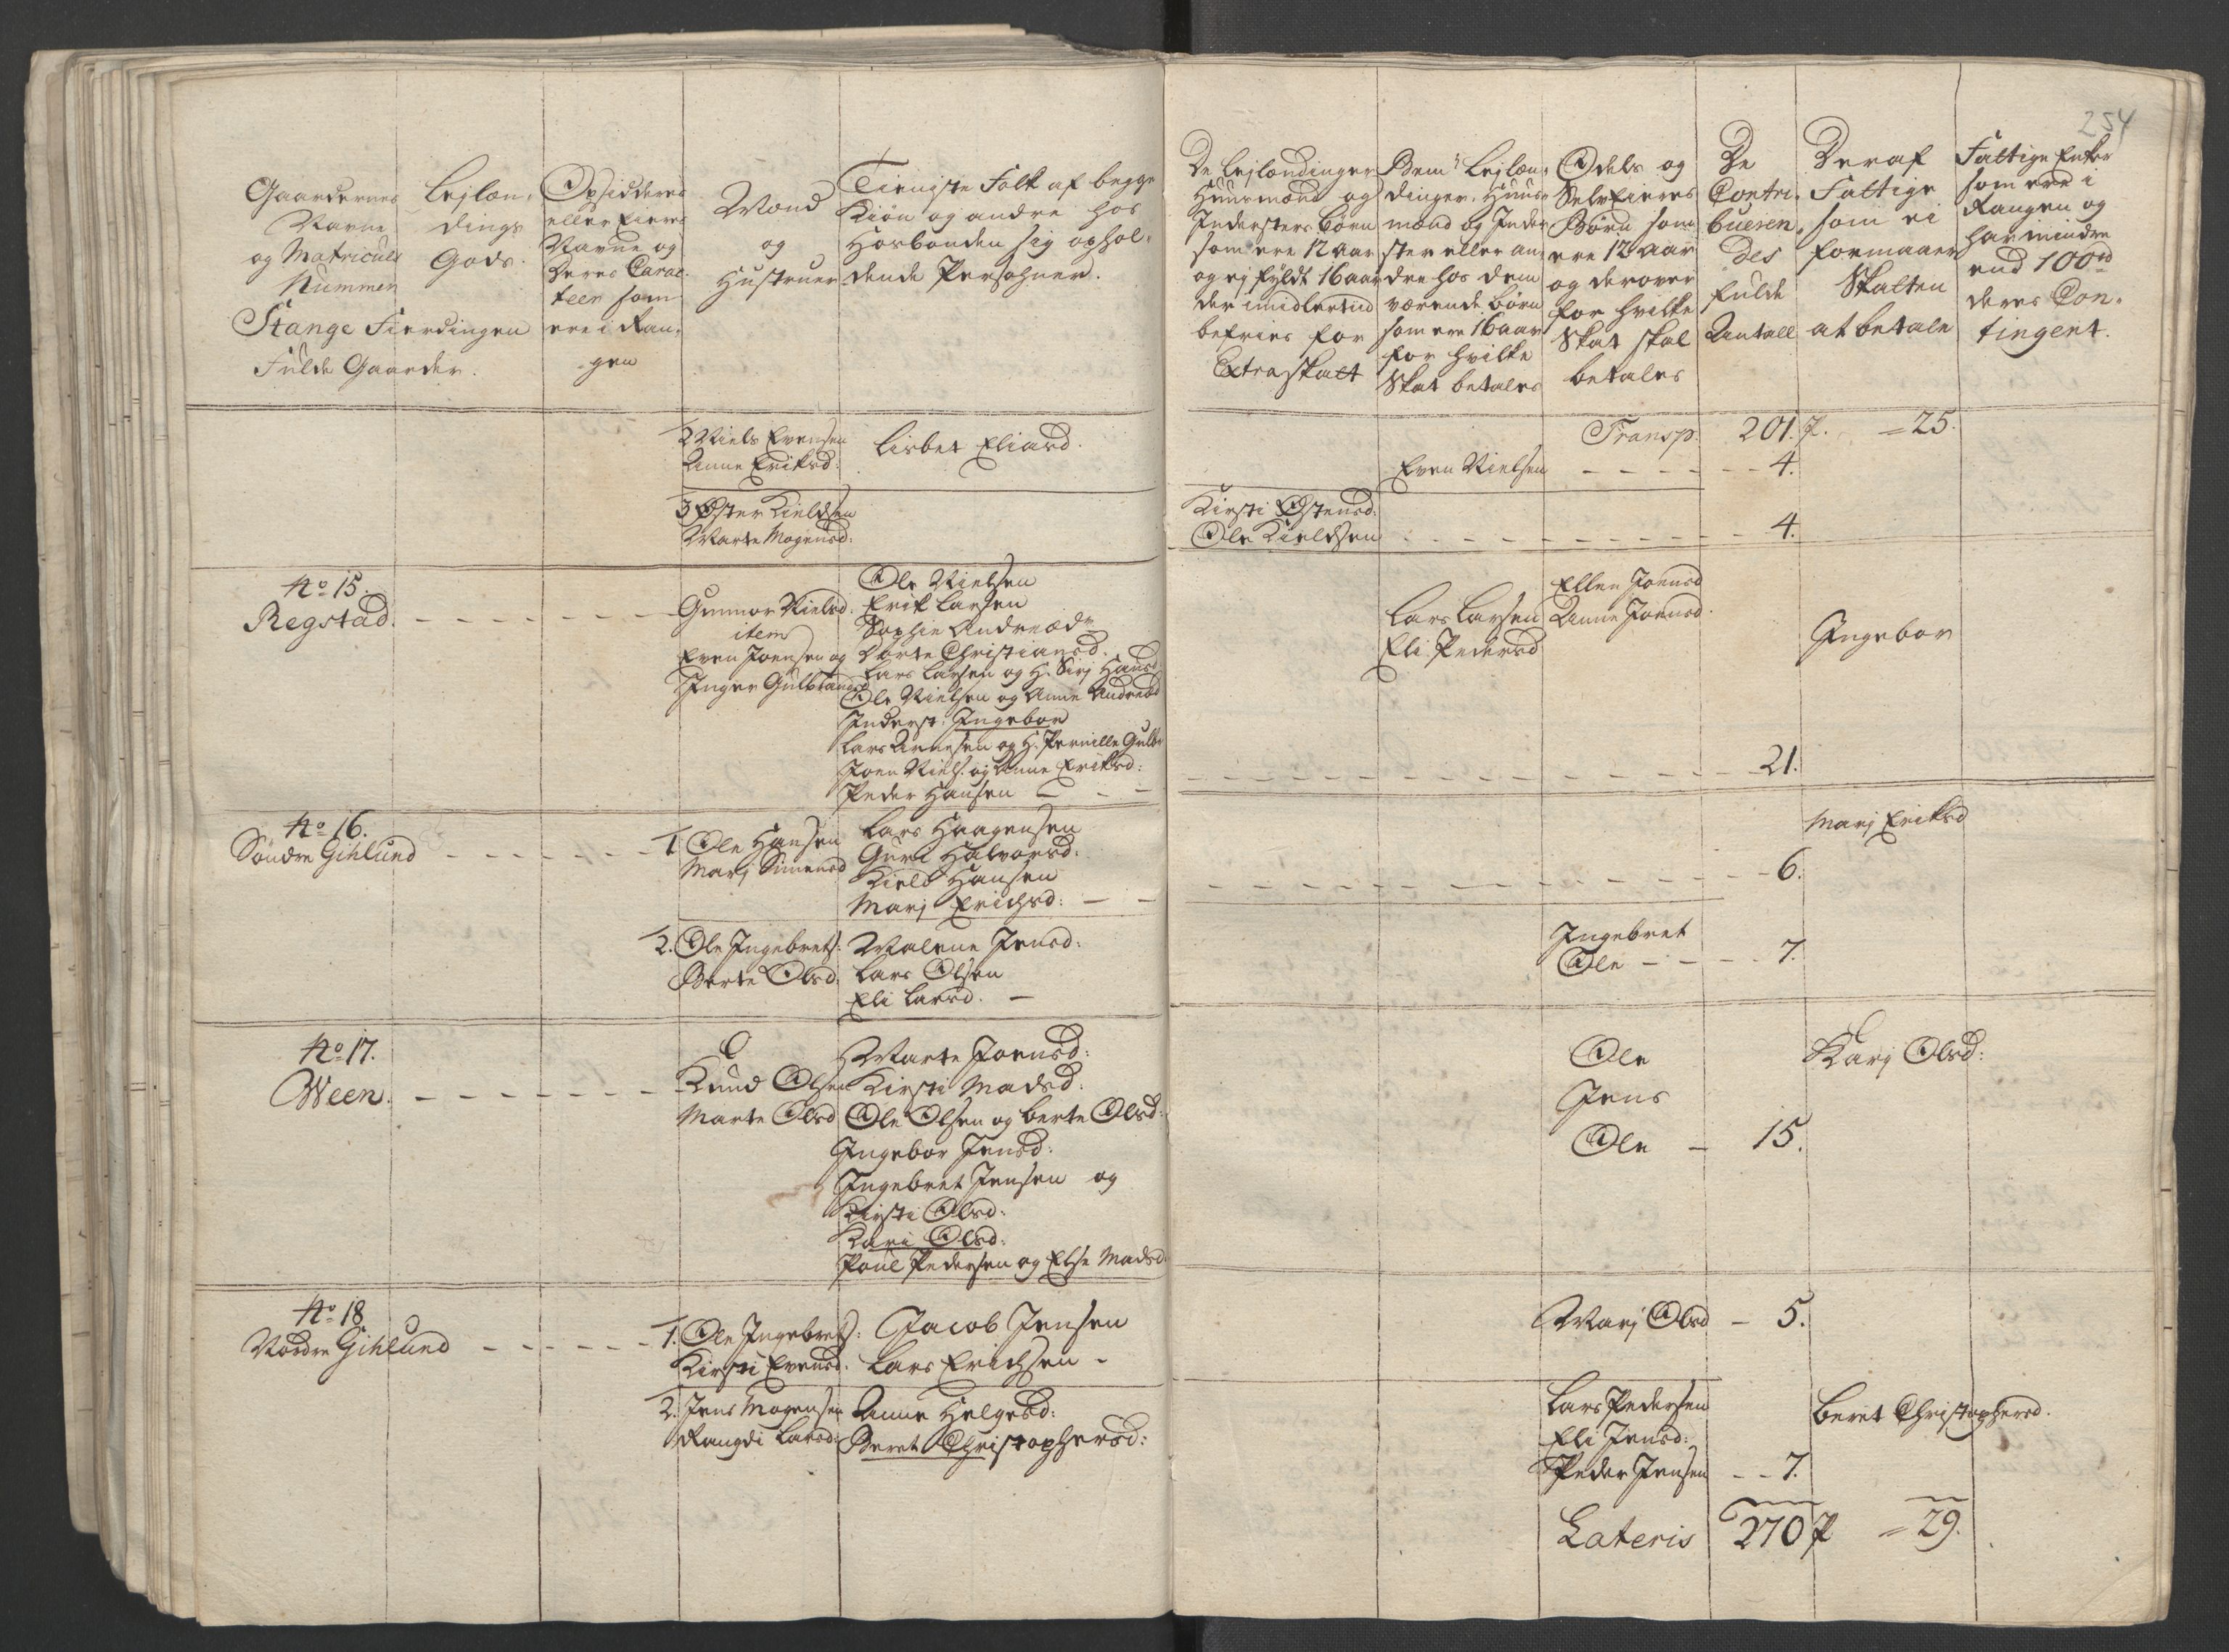 254
Gaardernes
Navne
og Matriculs
Nummer
Stange Fierdingen
Fulde Gaarder.
Lejlæn-
dings
Gods.
Opsiddernes
eller Eiernes
Navne og
Deres Carac-
teer som
ere i Ran-
gen
Mænd
og
Hustruer
Tieniste Folk af begge
Kiøn og andre hos
Hosbonden sig ophol-
dende Persohner.
De Lejlændinger
Huusmænd og
Inderster børn
som ere 12 aar
og ej fyldt 16 aar
der imidlertid
befries for
Extraskatt
Bem.te Lejlæn-
dinger, Huus-
mænd og Inder-
ster eller an-
dre hos dem
værende børn
som ere 16 aar
for hvilke
Skat betales
Odels og
Selveieres
Børn som
ere 12 aar
og derover
for hvilke
Skat skal
betales
De
Contri-
bueren-
des
fulde
Antall
Deraf
Fattige
som ei
formaaer
Skatten
at betale
Fattige Enker
som ere i
Rangen og
har mindre
end 100rd
deres Con-
tingent.
Transp. 201. P. = 25.
2 Niels Evensen Lisbet Eliasd.
Anne Eriksd:
Even Nielsen - - - - - - 4.
3 Østen Kieldsen
Marte Mogensd:
Kirsti Østensd:
Ole Kieldsen - - - - - - 4.
No 15.
Regstad. - - - - - -
Gunnor Nielsd.
item
Even Joensen og
Inger Gulbrandsd
Ole Nielsen
Erik Larsen
Sophie Andreæd
Dorte Christiansd.
Lars Larsen og H. Sirj Hansd
Ole Nielsen og Anne Andreæd
Inderst: Ingebor
Lars Arnesen og H. Pernille Gulb
Joen Niels. og Anne Eriksd:
Peder Hansen - - -
Lars Larsen
Eli Pedersd
Ellen Joensd
Anne Joensd.
Ingebor
- - - - - - 21.
No 16.
Søndre Gihlund - - - - - -
1. Ole Hansen
Marj Simensd
Lars Haagensen
Guri Halvorsd:
Kield Hansen
Marj Erichsd: - -
Marj Eriksd
- - - - - - 6.
2. Ole Ingebrets:
Berte Olsd:
Malene Jensd:
Lars Olsen
Eli Larsd. -
Ingebret
Ole - - - - 7.
No 17.
Ween. - - - - - -
Knud Olsen
Marte Olsd
Marte Joensd:
Kirsti Madsd:
Ole Olsen og berte Olsd:
Ingebor Jensd:
Ingebret Jensen og
Kirsti Olsd:
Kari Olsd:
Poul Pedersen og Else Madsd.
Ole
Jens
Ole - 15.
Karj Olsd:
No 18
Nordre Gihlund - - - - -
1. Ole Ingebrets:
Kirsti Evensd:
Jacob Jensen
Lars Erichsen -
Marj Olsd - 5.
2. Jens Mogensen
Rangdi Larsd:
Anne Helgesd:
Beret Christophersd:
Lars Pedersen
Eli Jensd:
Peder Jensen - - 7.
Beret Christophersd.
Lateris 270 P = 29.